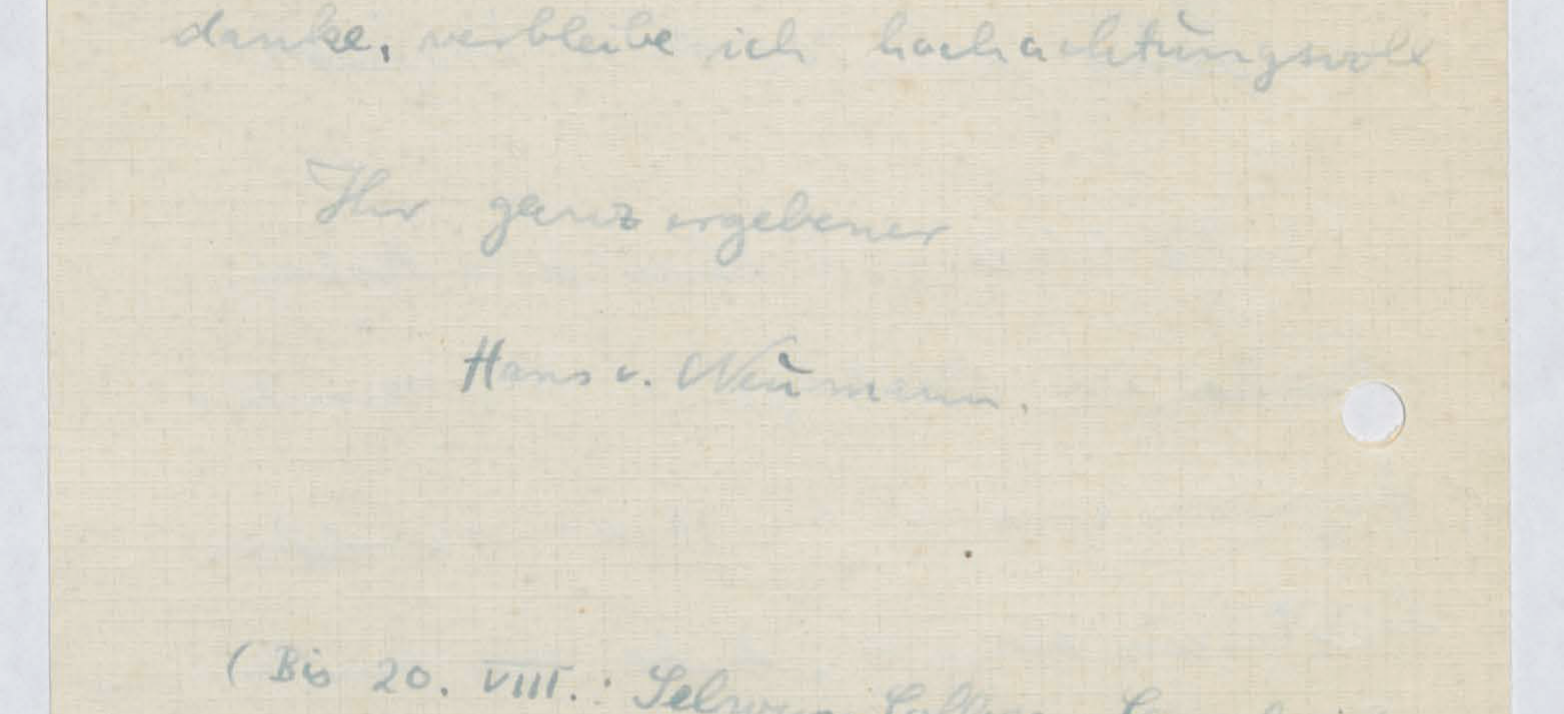 danke, verbleibe ich hochachtungsvoll
Ihr ganz ergebener
Hans v. Neumann.
(Bis 20. VIII.: Selwyn College